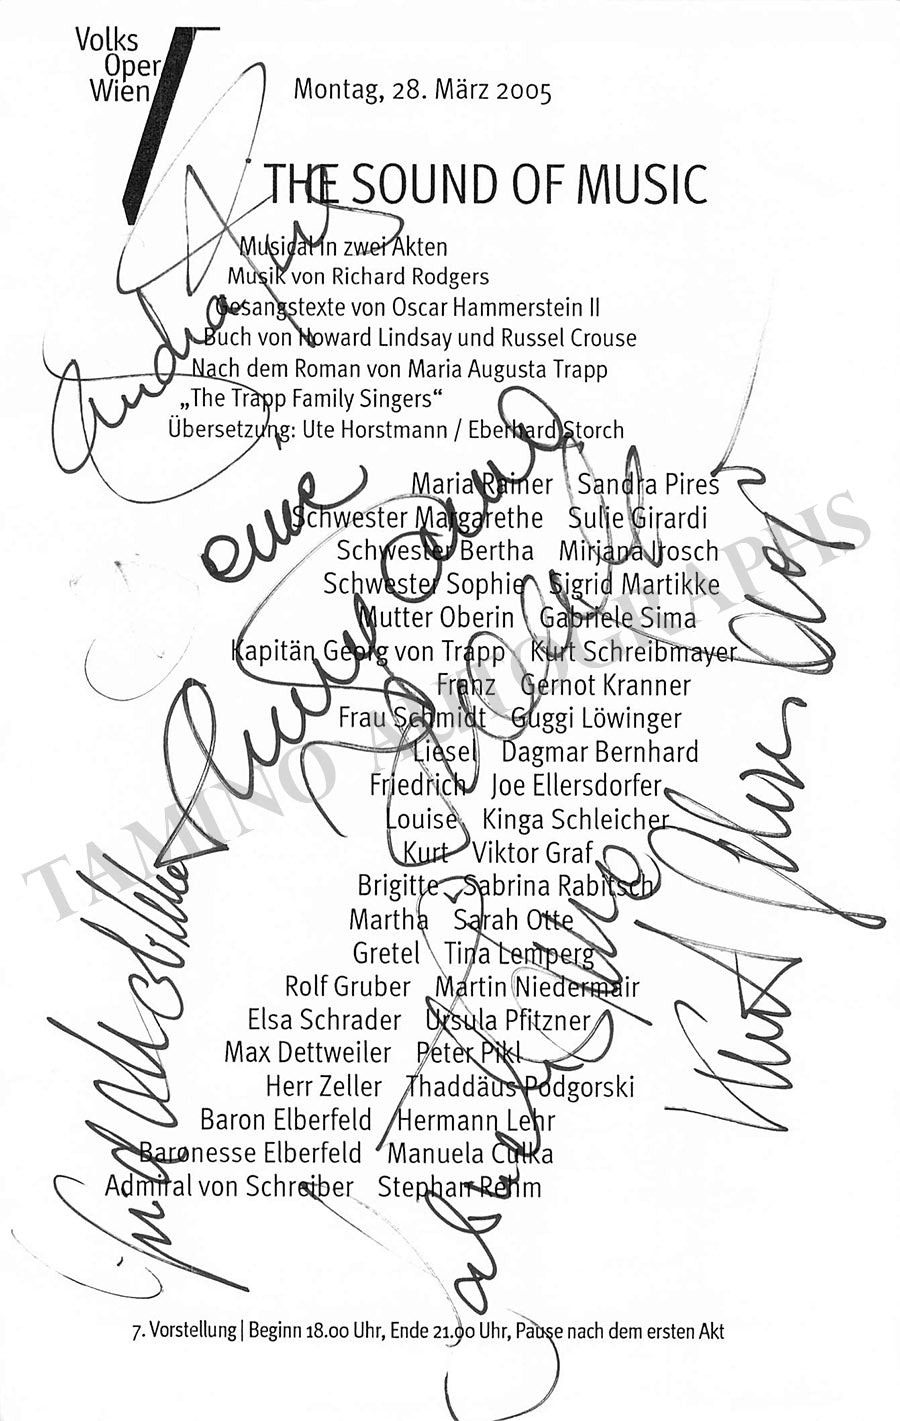 Volks
Oper
Wien
Montag, 28. März 2005
THE SOUND OF MUSIC
Musical in zwei Akten
Musik von Richard Rodgers
Gesangstexte von Oscar Hammerstein II
Buch von Howard Lindsay und Russel Crouse
Nach dem Roman von Maria Augusta Trapp
„The Trapp Family Singers“
Übersetzung: Ute Horstmann / Eberhard Storch
Maria Rainer Sandra Pires
Schwester Margarethe Sulie Girardi
Schwester Bertha Mirjana Irosch
Schwester Sophie Sigrid Martikke
Mutter Oberin Gabriele Sima
Kapitän Georg von Trapp Kurt Schreibmayer
Franz Gernot Kranner
Frau Schmidt Guggi Löwinger
Liesel Dagmar Bernhard
Friedrich Joe Ellersdorfer
Louise Kinga Schleicher
Kurt Viktor Graf
Brigitte Sabrina Rabitsch
Martha Sarah Otte
Gretel Tina Lemperg
Rolf Gruber Martin Niedermair
Elsa Schrader Ursula Pfitzner
Max Dettweiler Peter Pikl
Herr Zeller Thaddäus Podgorski
Baron Elberfeld Hermann Lehr
Baronesse Elberfeld Manuela Culka
Admiral von Schreiber Stephan Rehm
7. Vorstellung | Beginn 18.00 Uhr, Ende 21.00 Uhr, Pause nach dem ersten Akt
TAMINO AUTOGRAPHS